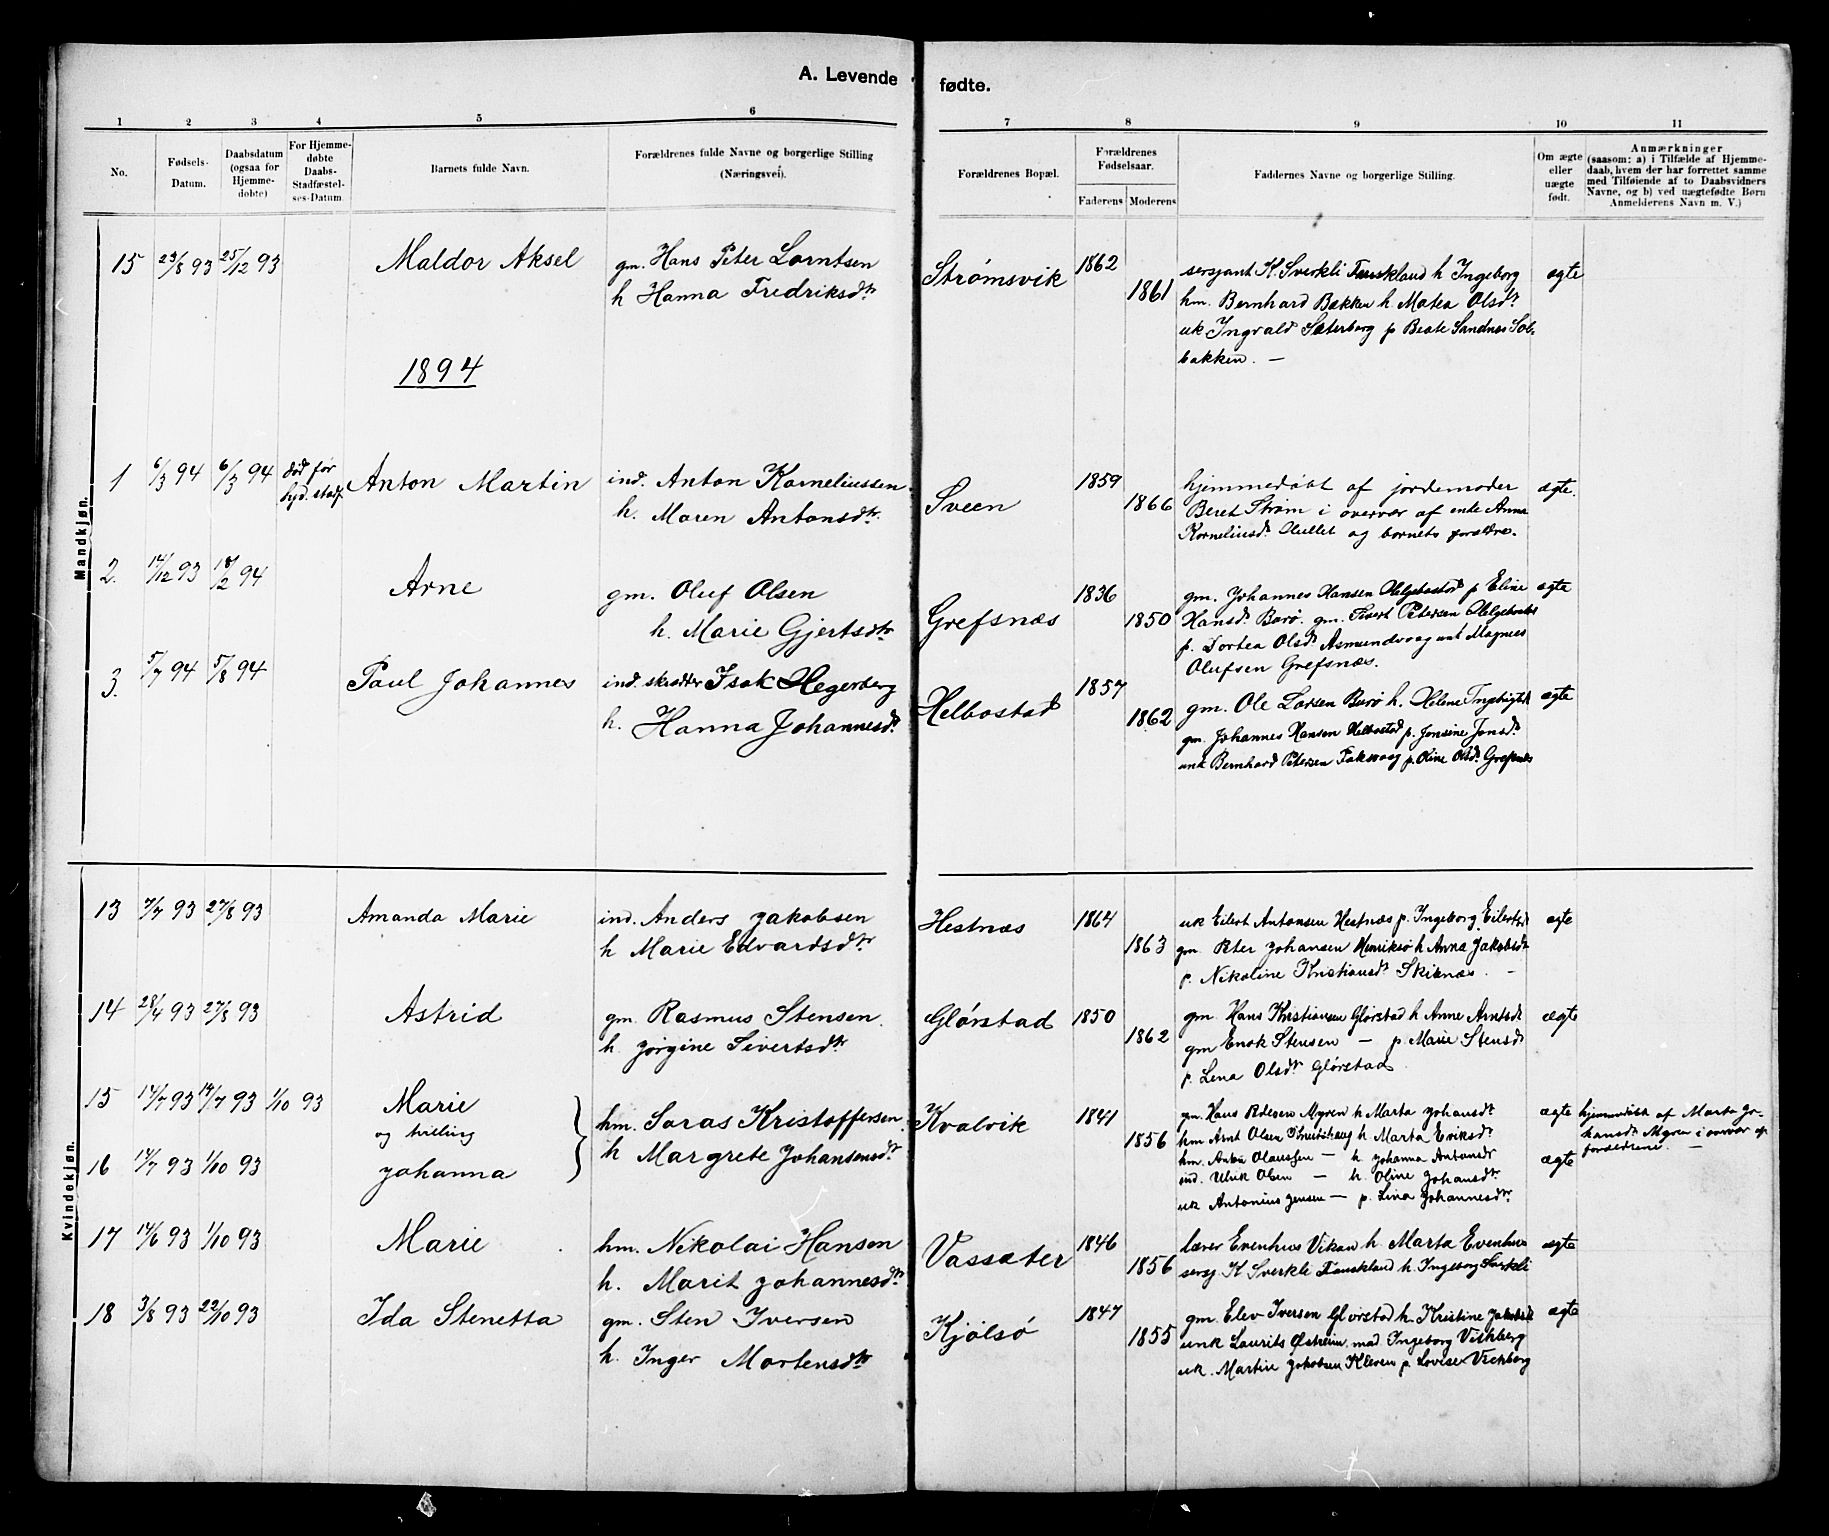 A. Levende fødte.
1 2 3 4 5 6 7 8 9 10 11
No.
Fødsels-
Datum.
Daabsdatum
(ogsaa for
Hjemme-
døbte)
For Hjemme-
døbte
Daabs-
Stadfæstel-
ses-Datum.
Barnets fulde Navn.
Forældrenes fulde Navne og borgerlige Stilling
(Næringsvei).
Forældrenes Bopæl.
Forældrenes
Fødselsaar.
Faderens Moderens
Faddernes Navne og borgerlige Stilling.
Om ægte
eller
uægte
født.
Anmærkninger
(saasom: a) i Tilfælde af Hjemme-
daab, hvem der har forrettet samme
med Tilføiende af to Daabsvidners
Navne, og b) ved uægtefødte Børn
Anmelderens Navn m. V.)
Mandkjøn.
15 23/8 93 25/12 93 Maldor Aksel
gm. Hans Peter Lorntsen
h Hanna Fredriksdtr
Strømsvik 1862 1861
sersjant K. Sverkli h Ingeborg
hm. Bernhard Bakken h. Matea Olsdtr
uk Ingvald Sæterborg p Beate Sandnes Sol-
bakken. —
ægte
1894
1 6/3 94 6/3 94 død før
stadf.
Anton Martin
ind. Anton Korneliussen
h. Maren Antonsdtr.
Sveen 1859 1866
hjemmedøbt af jordemoder
Beret Strøm i overvær af enke Anna
Korneliusdtr. og barnets forældre.
ægte.
2. 14/12 93 18/2 94 Arne
gm. Oluf Olsen
h. Marie Gjertsdtr
Grefsnæs 1836 1850
gm. Johannes Hansen Helgebostad p Eline
Hansdtr Burø. gm. Sivert Petersen Helgebostad
p. Dortea Olsdtr Asmundvaag unk Magnus
Olufsen Grefsnæs.
ægte
3. 5/7 94 5/8 94 Paul Johannes
ind. skrædder Isak Hegerberg
h. Hanna Johannesdtr
Helbostad 1857 1862
gm. Ole Larsen Burø h. Helene Ingebrigtsdtr
gm. Johannes Hansen Helbostad p. Jonsine Jonsdtr.
unk Bernhard Petersen Faksvaag p. Oline Olsdtr. Grefsnes
ægte
Kvindekjøn.
13 7/7 93 27/8 93 Amanda Marie
ind. Anders Jakobsen
h Marie Edvardsdtr
Hestnæs 1864 1863
uk Eilert Antonsen Hestnæs p. Ingeborg Eilertsdtr
gm. Peter Johansen Henriksø h Anna Jakobsdtr
p. Nikoline Kristiansdtr Skienæs. —
ægte
14 28/4 93 27/8 93 Astrid
gm. Rasmus Stensen.
h. Jørgine Sivertsdtr
Glørstad 1850 1862
gm. Hans Kristiansen Glørstad h Anne Arntsdtr
gm Enok Stensen — p Marie Stensdtr
p. Lena Olsdtr Glørstad
ægte
15 14/7 93 14/7 93 1/10 93 Marie
og tvilling
16 14/7 93 1/10 93 Johanna
hm. Saras Kristoffersen.
h Margrete Johansensdtr
Kvalvik 1841 1856
gm. Hans Pedersen Myren h Marta Johansdtr
hm Arnt Olsen h Marta Eriksdtr
hm. Anton — h Johanna Antonsdtr
ind. Ulrik Olsen — h Oline Johansdtr
uk Antonius Jensen — p. Lina Johannesdtr
ægte
ægte
hjemmedøbt af Marta Jo-
hansdtr Myren i overvær af
forældrene. —
17 14/6 93 1/10 93 Marie
hm. Nikolai Hansen
h. Marit Johannesdtr
Vassæter 1846 1856
lærer Evenhus Vikan h. Marta Evenhus
sersj K Sverkli h. Ingeborg Sverkli
ægte
18 3/8 93 22/10 93 Ida Stenetta
gm. Sten Iversen
h. Inger Mortensdtr
Kjølsø 1847 1855
gm. Elev Iversen Glørstad h. Kristine Jakobsdtr
unk Laurits Østreim, mad Ingeborg Vichberg
uk. Martin Jakobsen Kleven p Lovise Vichberg
ægte